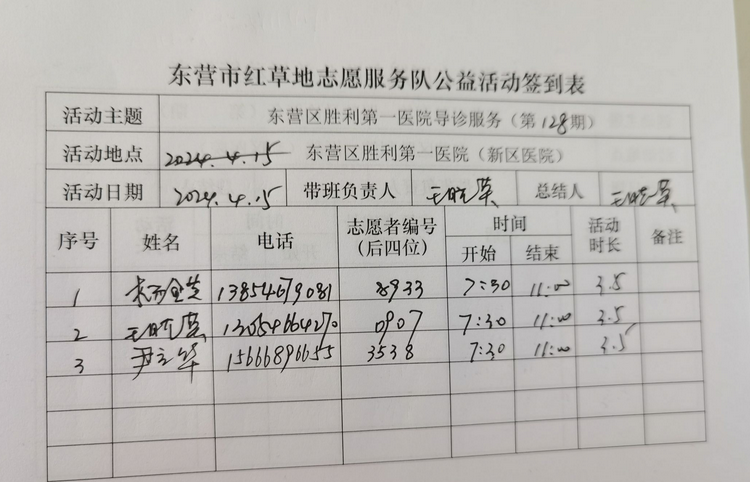 东营市红草地志愿服务队公益活动签到表
活动主题 东营区胜利第一医院导诊服务（第128期）
活动地点 2024.4.15 东营区胜利第一医院（新区医院）
活动日期 2024.4.15 带班负责人 王晓英 总结人 王晓英
序号 姓名 电话 志愿者编号（后四位） 时间 开始 结束 活动时长 备注
1 13854679081 8933 7:30 11:00 3.5
2 王晓英 13054664270 0907 7:30 11:00 3.5
3 尹立华 15666896655 3538 7:30 11:00 3.5